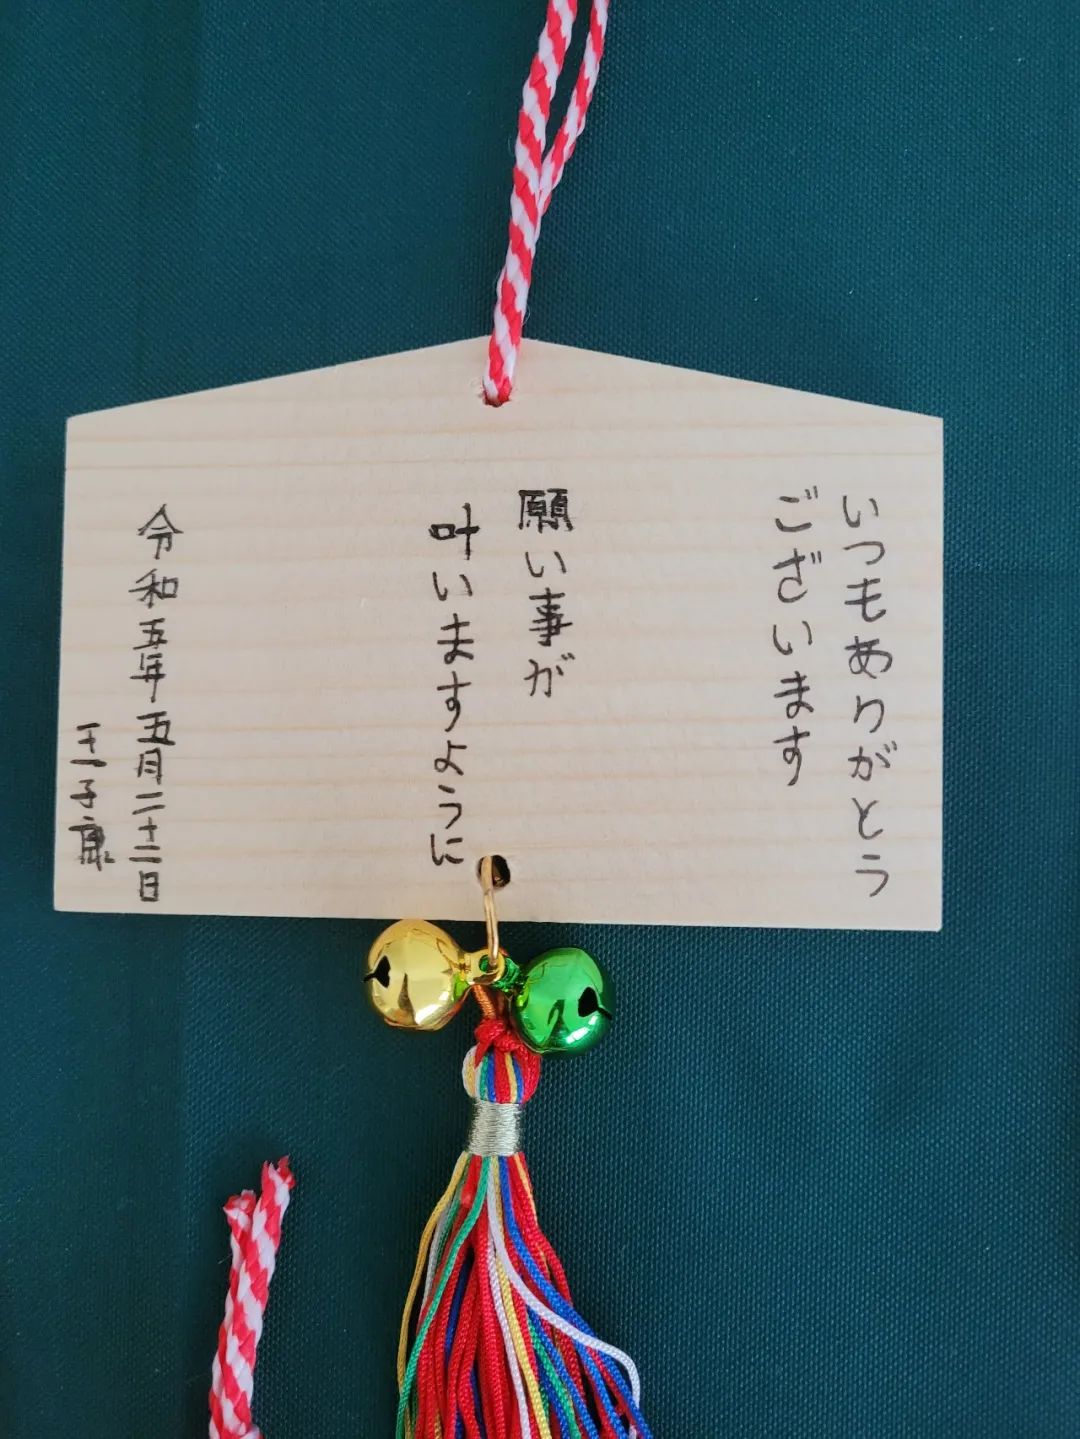 いつもありがとう
ございます
願い事が
叶いますように
令和五年五月二十二日
王子康